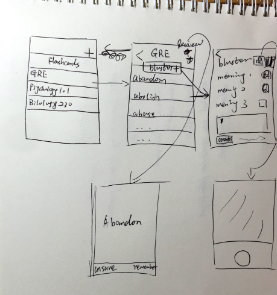 +
Flashcards
GRE
Psychology 101
Biology 230
< GRE
Review
bluster +
abandon
abolish
abuse
...
...
< bluster
meaning 1
meaning 2
meaning 3
Abandon
unsure remember